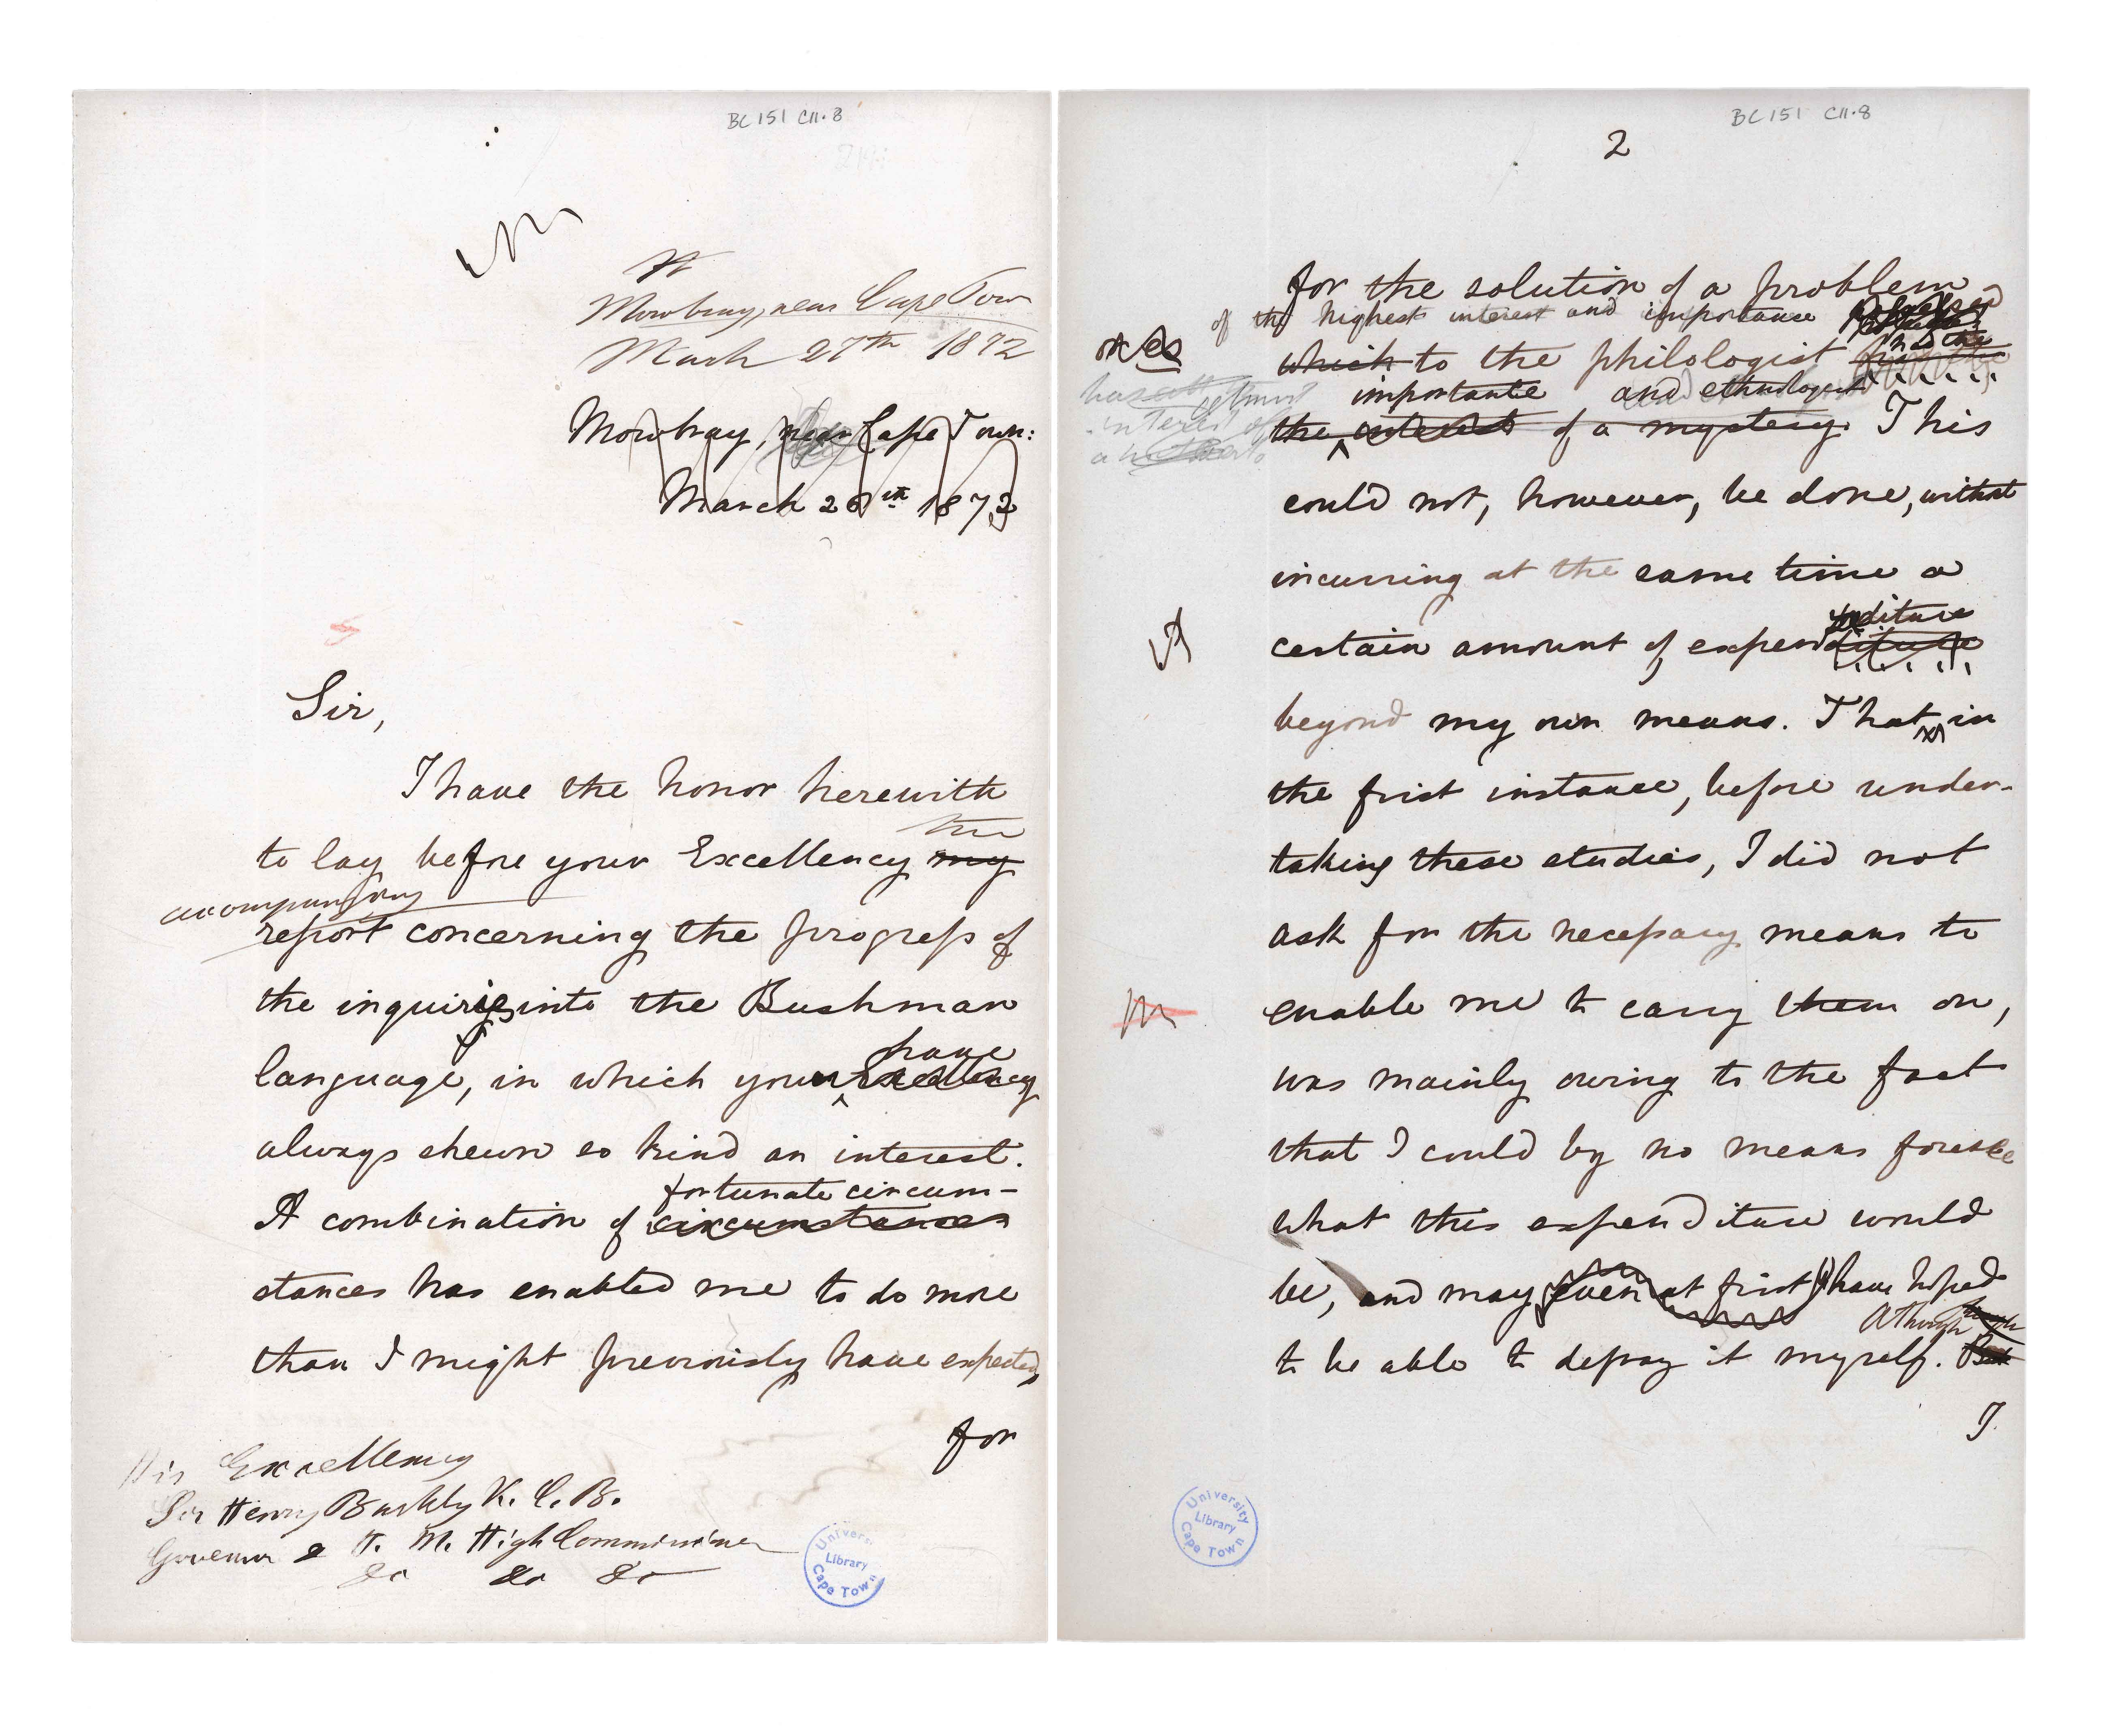 BC 151 C11.8
Mowbray, near Cape Town
March 27th 1872
Mowbray, near Cape Town:
March 26th 1872
Sir,
I have the honor herewith
the
to lay before your Excellency my
accompanying
report concerning the progress of
the inquiries into the Bushman
have
language, in which your Excellency
always shewn so kind an interest.
fortunate circum-
A combination of circumstances
stances has enabled me to do more
than I might previously have expected,
for
His Excellency
Sir Henry Barkly K. C. B.
Governor & H. M. High Commissioner
&c &c &c
University Library Cape Town
BC 151 C11.8
2
for the solution of a problem
of the highest interest and importance
which to the philologist
importante and ethnologist
the interest of a mystery. This
has utmost
interest of
a
could not, however, be done, without
incurring at the same time a
nditure
certain amount of expenditure
beyond my own means. That, in
the first instance, before under-
taking these studies, I did not
ask for the necessary means to
enable me to carry them on,
was mainly owing to the fact
that I could by no means foresee
what this expenditure would
be, and may even at first have hoped
Although
to be able to defray it myself. But
I.
University Library Cape Town